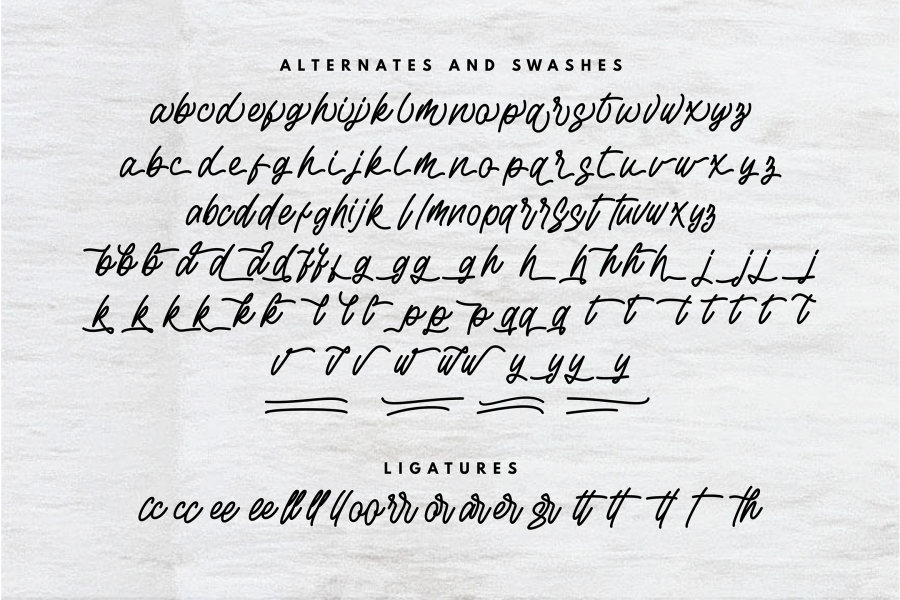 ALTERNATES AND SWASHES
abcdefghijklmnopqrstuvwxyz
abcdefghijklmnopqrstuvwxyz
abcddefghijk llmnopqrrsst tuvwxyz
bbb d d ddfffg gg gh h h hhh j jj j
k k k k k k l l l p p p q q q t t t t t t t
v v v w w w y y y y
LIGATURES
cc cc ee ee ll ll ll oo rr or or er sr tt tt tt t th